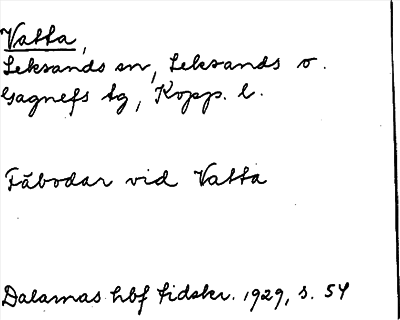 Vatta,
Leksands sn, Leksands o.
Gagnefs tg, Kopp. l.
Fäbodar vid Vatta
Dalarnas hbf tidskr. 1929, s. 54